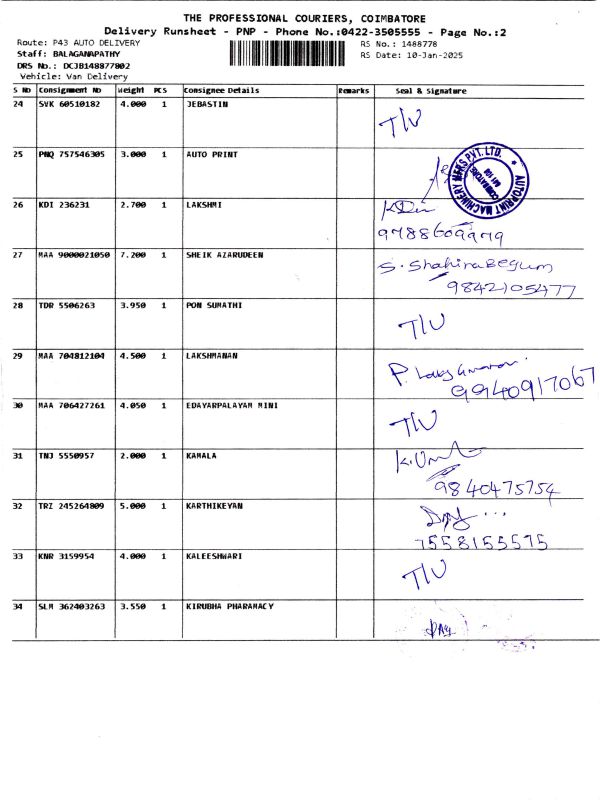 THE PROFESSIONAL COURIERS, COIMBATORE
Delivery Runsheet - PNP - Phone No.:0422-3505555 - Page No.:2
Route: P43 AUTO DELIVERY
RS No.: 1488778
Staff: BALAGANAPATHY
RS Date: 10-Jan-2025
DRS No.: DCJB148877802
Vehicle: Van Delivery
S No Consignment No Weight PCS Consignee Details Remarks Seal & Signature
24 SVK 60510182 4.000 1 JEBASTIN
T/V
25 PNQ 757546305 3.000 1 AUTO PRINT
AUTOPRINT MACHINERY MFRS PVT. LTD.
COIMBATORE
26 KDI 236231 2.700 1 LAKSHMI
9788609979
27 MAA 9000021050 7.200 1 SHEIK AZARUDEEN
S. Shahira Begum
9842105477
28 TDR 5506263 3.950 1 PON SUMATHI
T/V
29 MAA 704812104 4.500 1 LAKSHMANAN
9940917067
30 MAA 706427261 4.050 1 EDAYARPALAYAM MINI
T/V
31 TNJ 5550957 2.000 1 KAMALA
9840475754
32 TRZ 245264809 5.000 1 KARTHIKEYAN
7558155575
33 KNR 3159954 4.000 1 KALEESHWARI
T/V
34 SLM 362403263 3.550 1 KIRUBHA PHARAMACY